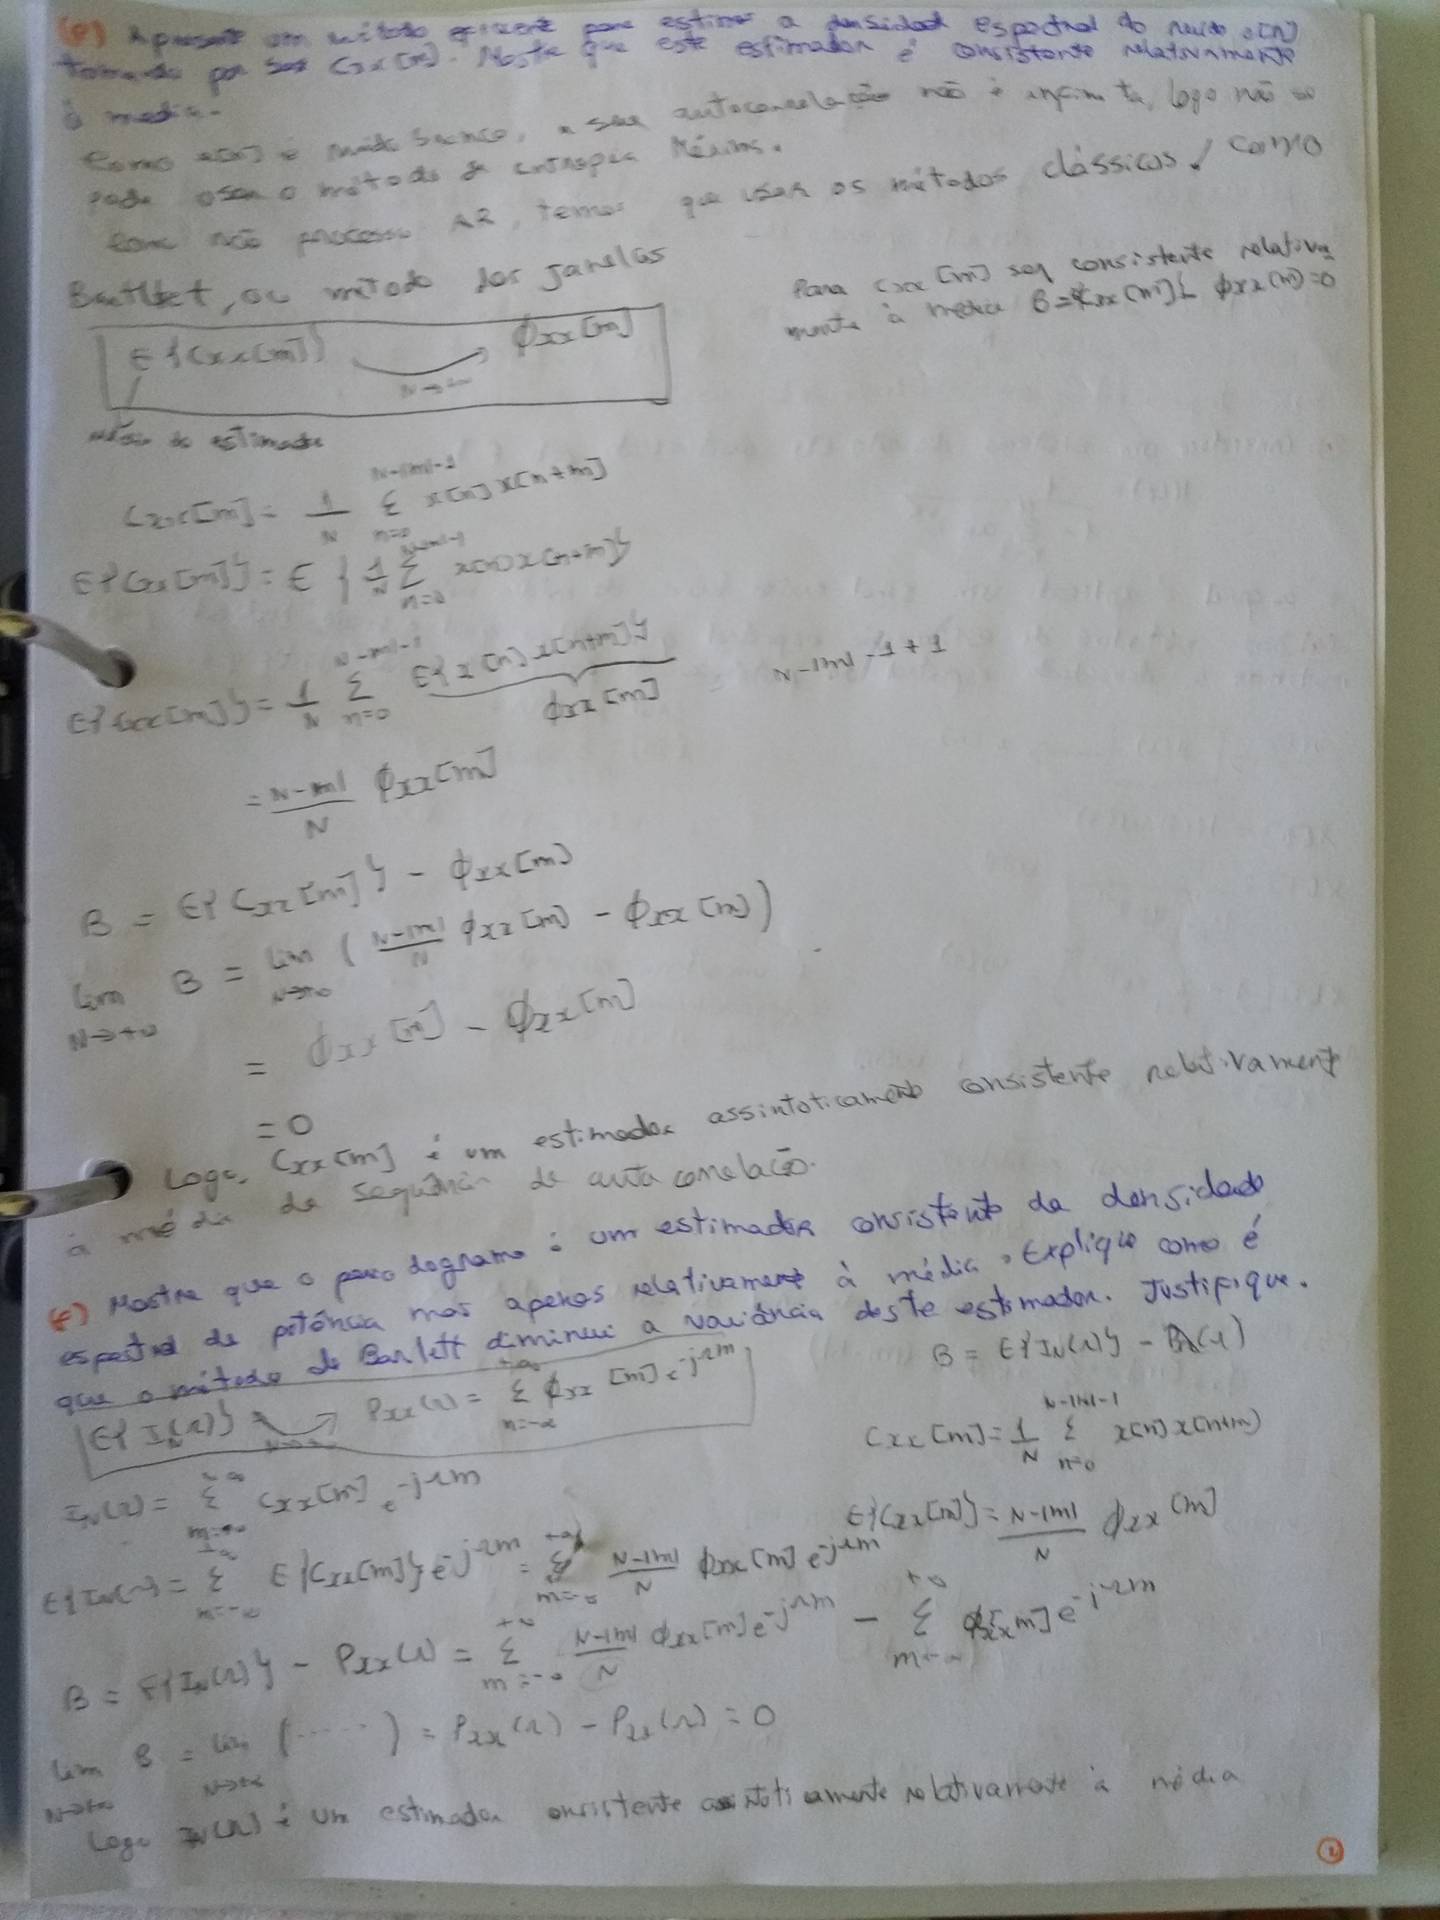 (e) Apresente um método eficiente para estimar a densidade espectral do ruído e[n]
tomando por base Cxx[m]. Mostre que este estimador é consistente relativamente
à media.
Como e[n] é ruído branco, a sua autocorrelação não é infinita, logo não se
pode usar o método de entropia Máxima.
Como não processo AR, temos que usar os métodos clássicos, como
Bartlet, ou método das janelas
Para Cxx[m] ser consistente relativa
mente à média B = E{Cxx[m]} - ϕxx[m] = 0
E{Cxx[m]} → ϕxx[m]
N→+∞
média do estimador
Cxx[m] = 1/N Σ_{n=0}^{N-|m|-1} x[n] x[n+m]
E{Cxx[m]} = E {1/N Σ_{n=0}^{N-|m|-1} x[n] x[n+m]}
E{Cxx[m]} = 1/N Σ_{n=0}^{N-|m|-1} E{x[n] x[n+m]} N-|m|-1+1
ϕxx[m]
= (N-|m|)/N ϕxx[m]
B = E{Cxx[m]} - ϕxx[m]
lim_{N→+∞} B = lim_{N→+∞} ((N-|m|)/N ϕxx[m] - ϕxx[m])
= ϕxx[m] - ϕxx[m]
= 0
Logo, Cxx[m] é um estimador assintoticamente consistente relativamente
à média da sequência de auto correlação.
(f) Mostre que o periodograma é um estimador consistente da densidade
espectral de potência mas apenas relativamente à média. Explique como é
que o método de Barlett diminui a variância deste estimador. Justifique.
E{I_N(Ω)} → Pxx(Ω) = Σ_{m=-∞}^{+∞} ϕxx[m] e^{-jΩm}
B = E{I_N(Ω)} - Pxx(Ω)
Cxx[m] = 1/N Σ_{n=0}^{N-|m|-1} x[n] x[n+m]
I_N(Ω) = Σ_{m=-∞}^{+∞} Cxx[m] e^{-jΩm}
E{Cxx[m]} = (N-|m|)/N ϕxx[m]
E{I_N(Ω)} = Σ_{m=-∞}^{+∞} E{Cxx[m]} e^{-jΩm} = Σ_{m=-∞}^{+∞} (N-|m|)/N ϕxx[m] e^{-jΩm}
B = E{I_N(Ω)} - Pxx(Ω) = Σ_{m=-∞}^{+∞} (N-|m|)/N ϕxx[m] e^{-jΩm} - Σ_{m=-∞}^{+∞} ϕxx[m] e^{-jΩm}
lim_{N→+∞} B = lim_{N→+∞} (......) = Pxx(Ω) - Pxx(Ω) = 0
Logo I_N(Ω) é um estimador consistente assintoticamente relativamente à média